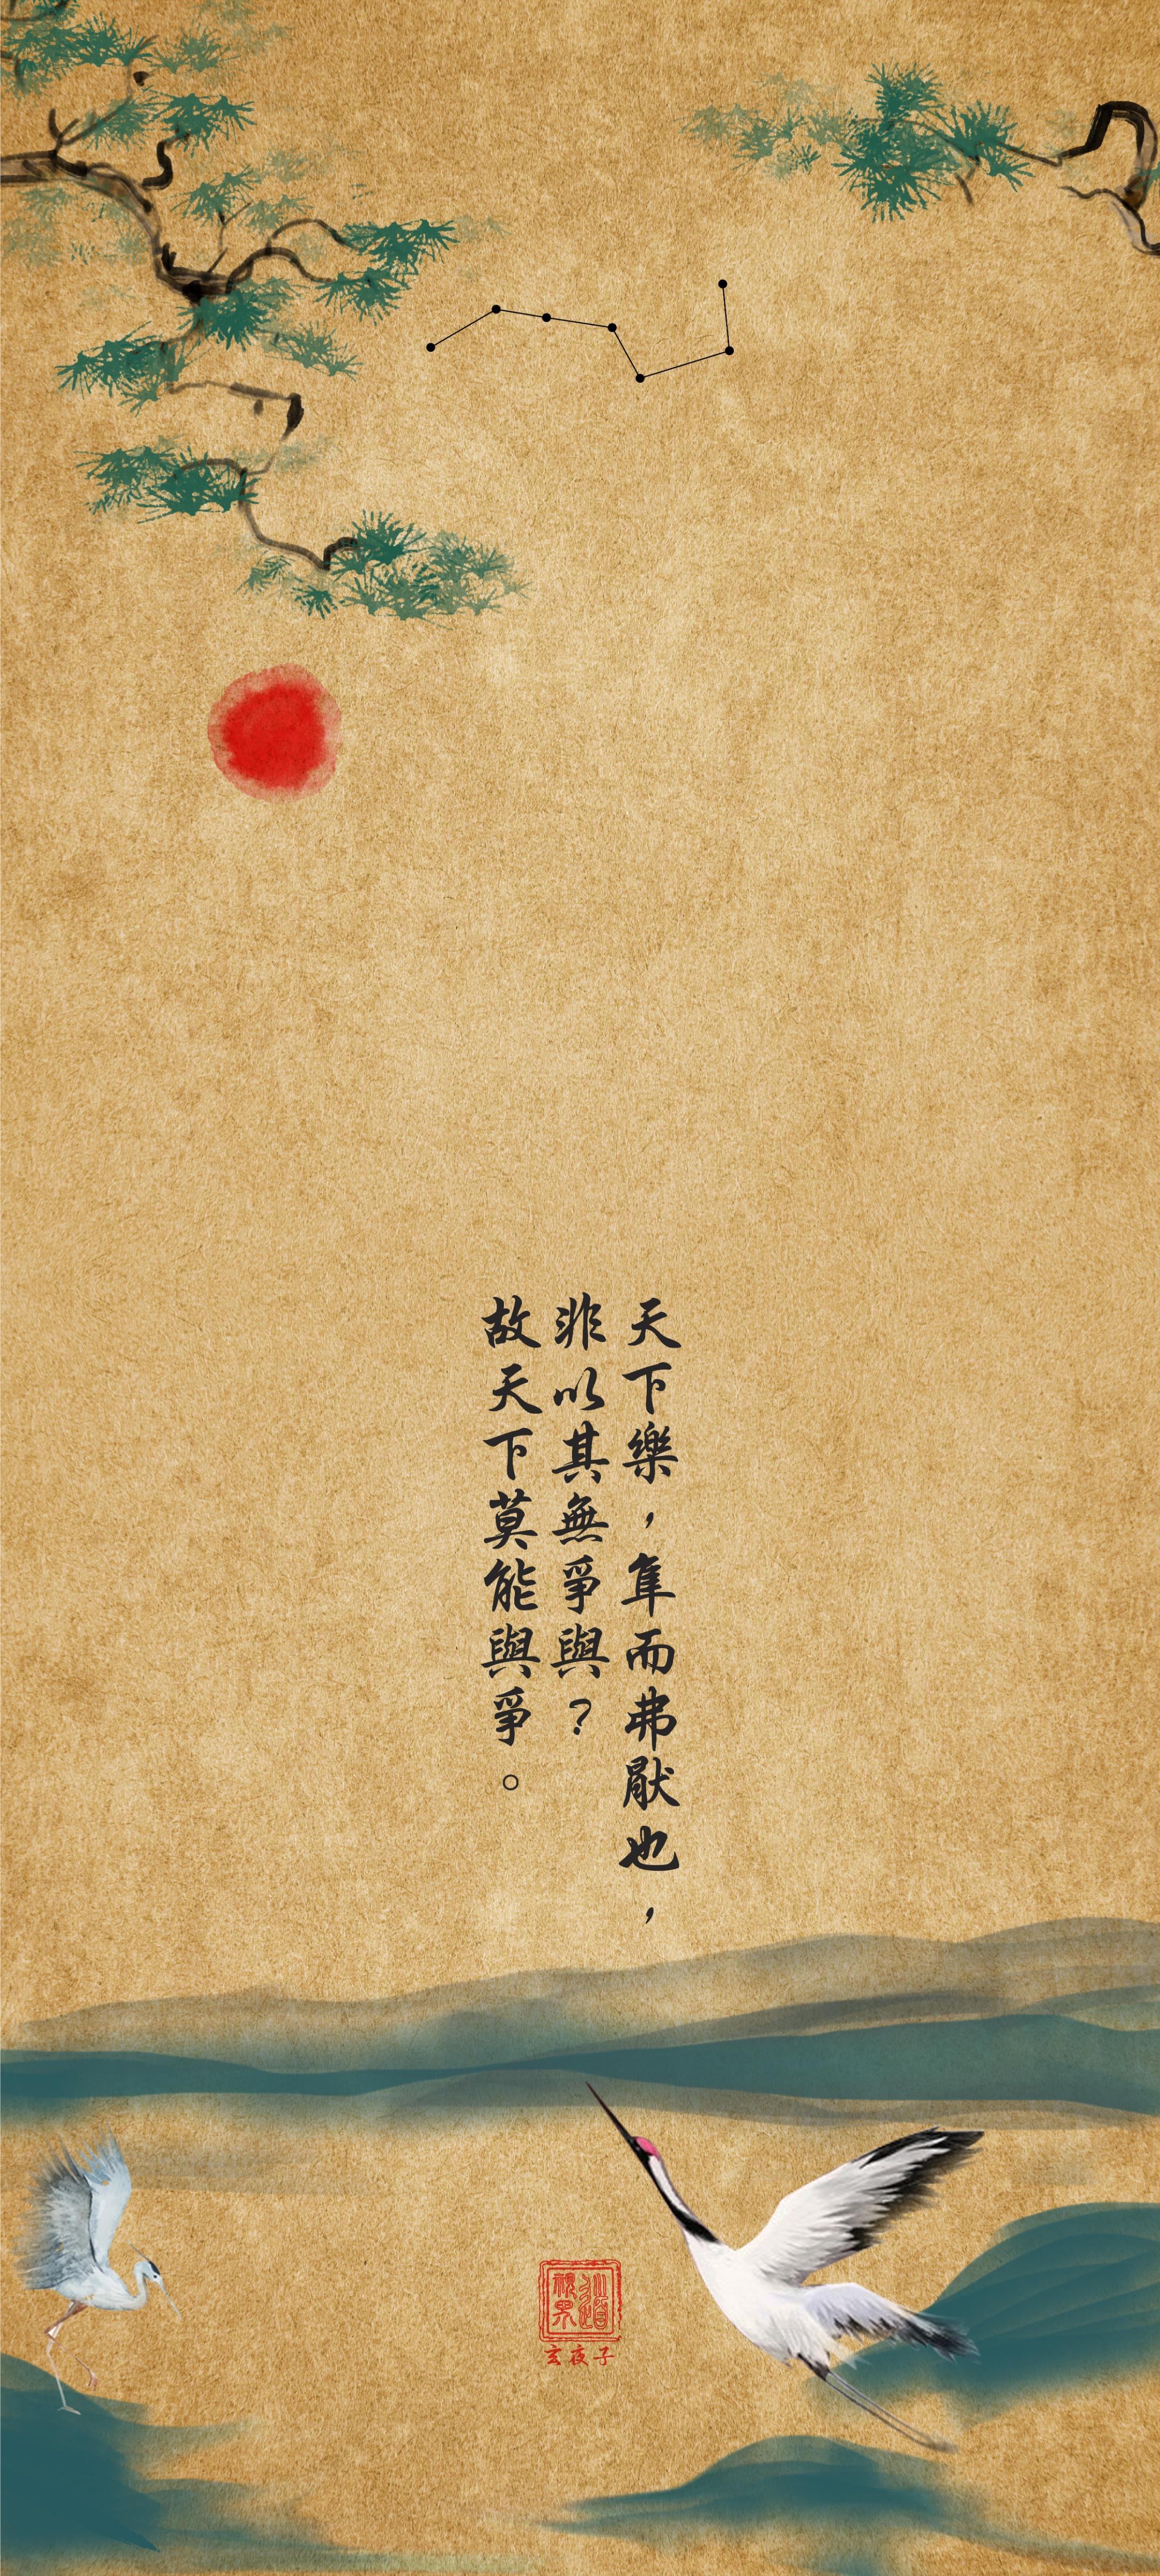 天下樂，隼而弗猒也，
非以其無爭與？
故天下莫能與爭。
道視界
玄夜子